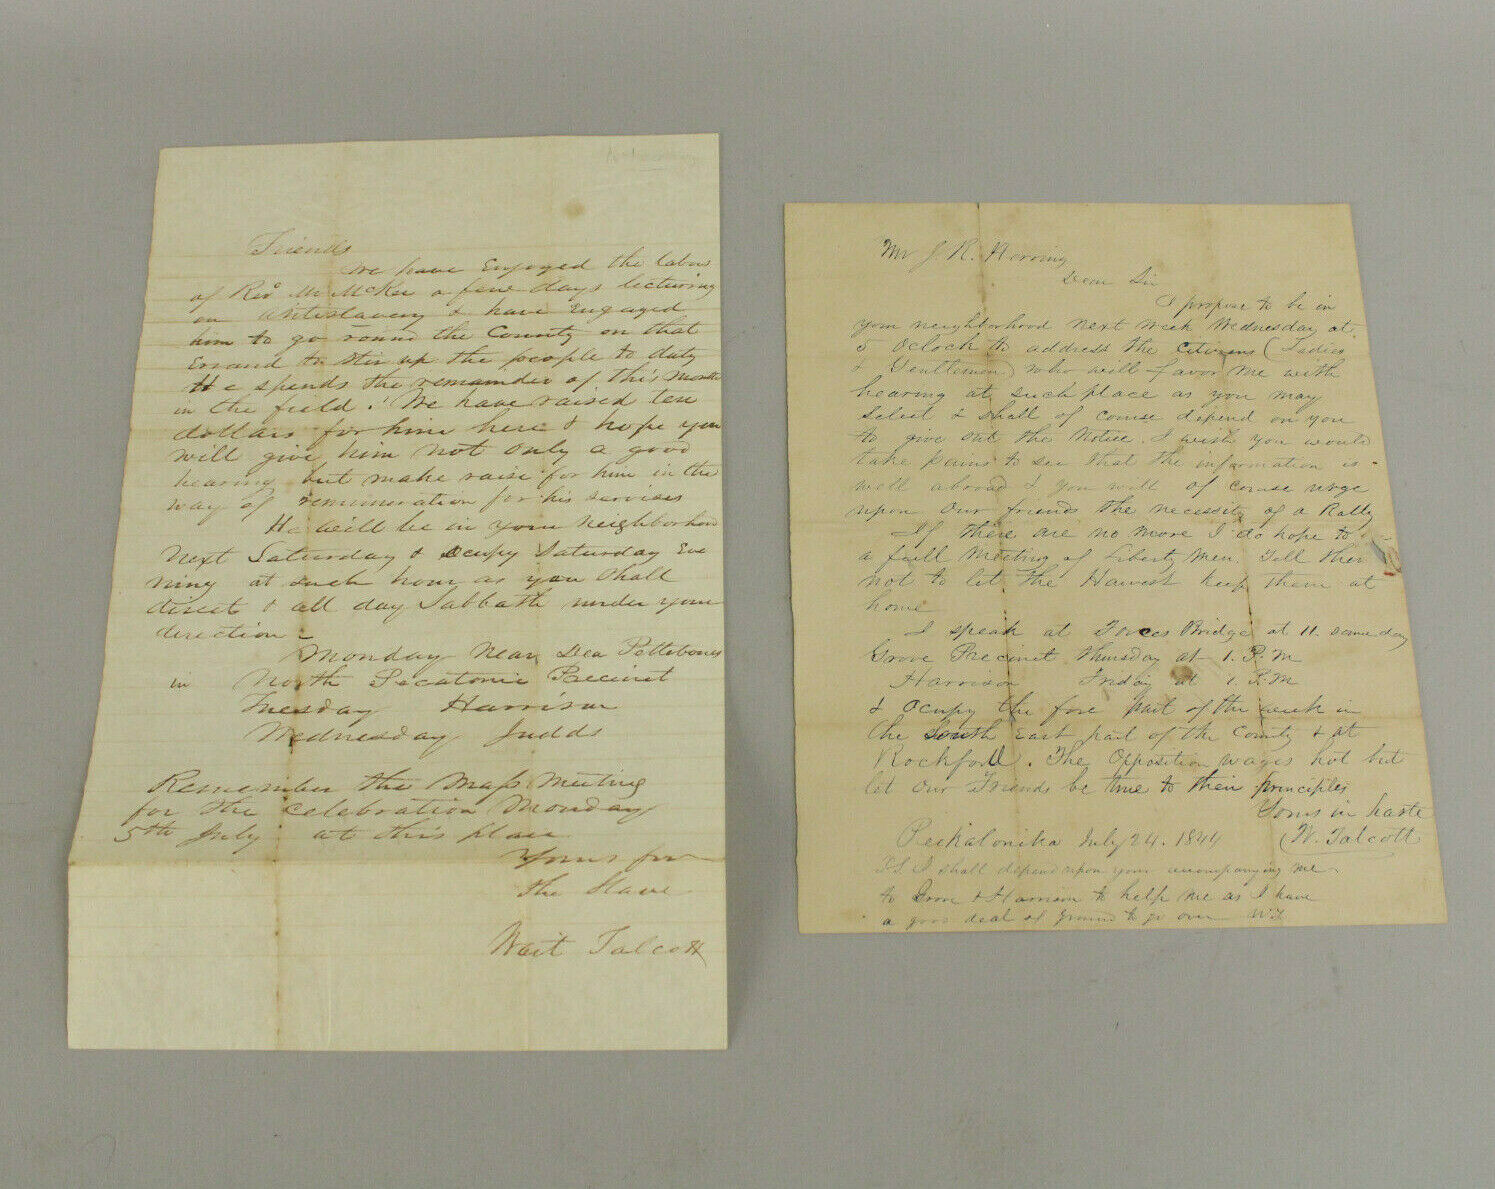 Friends
We have Enjoyed the labor
of Revd Mr McKee a few days lecturing
on Antislavery & have Engaged
him to go round the County on that
Errand to stir up the people to duty
He spends the remainder of this Month
in the field. We have raised ten
dollars for him here & hope you
will give him not only a good
hearing but make raise for him in the
way of remuneration for his services
He will be in your neighborhood
next Saturday & occupy Saturday Eve
ning at such hour as you shall
direct & all day Sabbath under your
direction -
Monday Near Dea Pettebones
in North Pecatonic Precinct
Tuesday Harrison
Wednesday Judds
Remember the Mass Meeting
for the celebration Monday
5th July at this place
Yours for
the Slave
Wait Talcott
Mr J R. Herring
Dear Sir
I propose to be in
your neighborhood next week Wednesday at
5 Oclock to address the Citizens (Ladies
& Gentlemen) who will favor me with
hearing at such place as you may
select & shall of course depend on you
to give out the Notice. I wish you would
take pains to see that the information is
well abroad & you will of course urge
upon our friends the necessity of a Rally
If there are no more I do hope to
a full meeting of Liberty men. Tell them
not to let the Harvest keep them at
home
I speak at Bridge at 11. same day
Grove Precinct Thursday at 1. P.M
Harrison Friday at 1 P.M
& Occupy the fore part of the week in
the South East part of the County & at
Rockford. The Opposition wages hot but
let our Friends be true to their principles
Yours in haste
W. Talcott
Peckatonika July 24. 1844
P.S I shall depend upon your accompanying me
to Grove & Harrison to help me as I have
a good deal of ground to go over W.T.